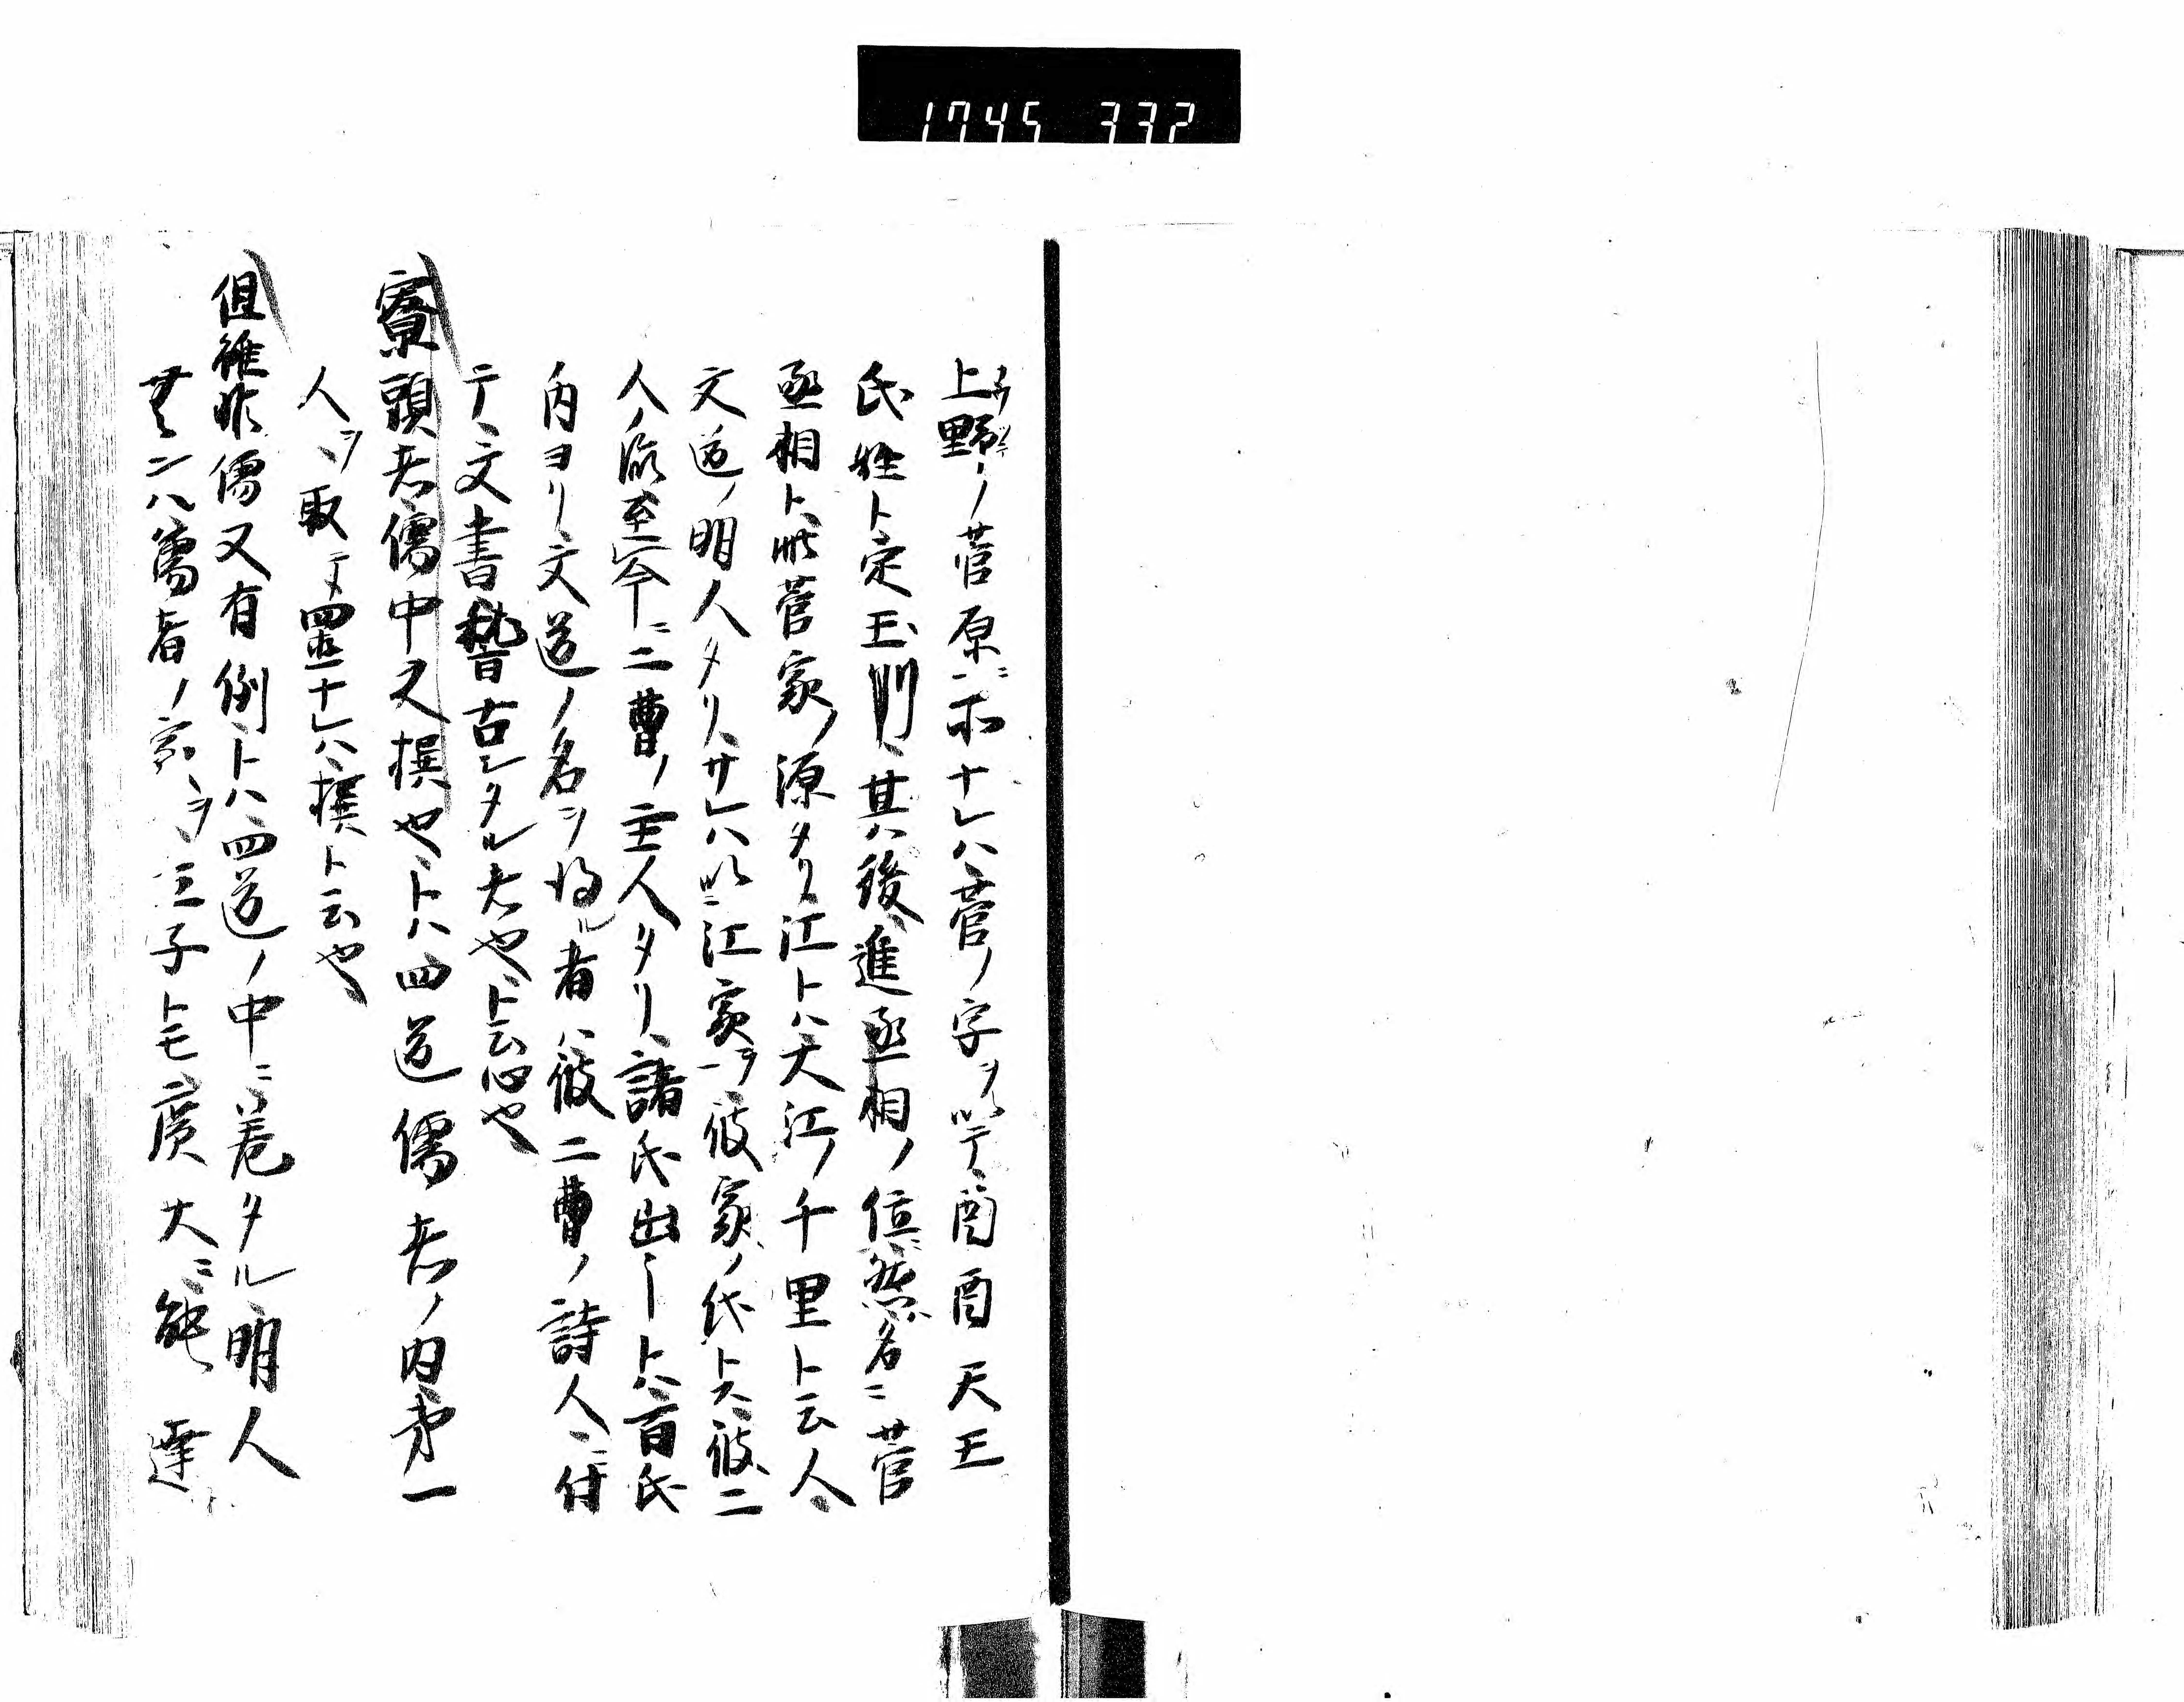 1745 332
上野ノ菅原ニホナレハ菅ノ字ヲ以テ酉酉天王
氏姓ト定玉ﾌ其後進丞相ノ位然名ニ菅
丞相ト此菅家ノ源タリ江トハ大江ノ千里ト云人
文道ノ明人タリサレハ以江家ヲ彼家ノ氏トス彼二
人ノ流至今ニ二曹ノ主人タリ諸氏出ートハ百氏
内ヨリ文道ノ名ヲ得ル者ハ彼二曹ノ詩人ニ付
テ文書稽古シタル大也ト云心也
寮頭者儒中又撰也トハ四道儒者ノ内第一
人ヲ取テ置ナレハ撰ト云也
但雖非儒又有例トハ四道ノ中ニ巻タル明人
無ンハ儒者ノ家ヲ立子トモ広大ニ能達